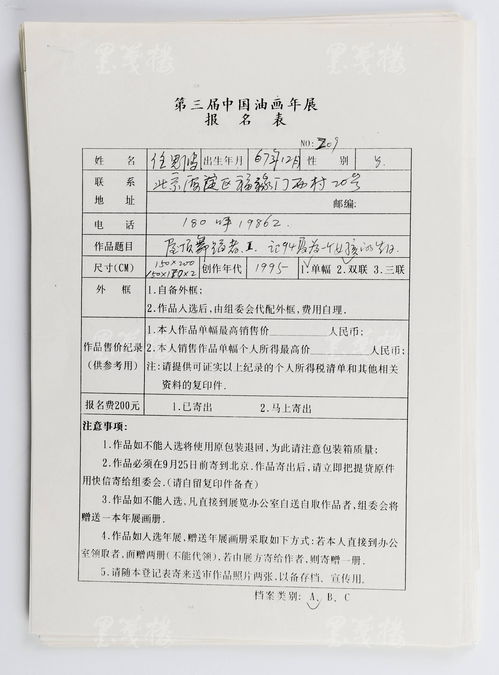 墨笺楼
墨笺楼
第三届中国油画年展
报 名 表
NO: 209
姓 名 任思鸿 出生年月 67年12月 性 别 男
联 系 地 址 北京海淀区福缘门西村20号
邮编:
电 话 180呼19862.
作品题目 屋顶舞蹈者.Ⅱ.
尺寸(CM) 150×200 150×180×2 创作年代 1995 1.单幅 2.双联 3.三联
外 框 1.自备外框;
2.作品入选后,由组委会代配外框,费用自理.
作品售价纪录 (供参考用) 1.本人作品单幅最高销售价 人民币;
2.本人销售作品单幅个人所得最高价 人民币;
注:请提供可证实以上纪录的个人所得税清单和其他相关
资料的复印件.
报名费200元 1.已寄出 2.马上寄出
注意事项:
1.作品如不能入选将使用原包装退回,为此请注意包装箱质量;
2.作品必须在9月25日前寄到北京.作品寄出后,请立即把提货原件
用快信寄给组委会.(请自留复印件备查)
3.作品如不能入选,凡直接到展览办公室自送自取作品者,组委会将
赠送一本年展画册.
4.作品如入选年展,赠送年展画册采取如下方式:若本人直接到办公
室领取者,而赠两册(不能代领),若由展方寄给作者,则寄赠一册.
5.请随本登记表寄来送审作品照片两张,以备存档、宣传用.
档案类别: A、B、C
墨笺楼
墨笺楼